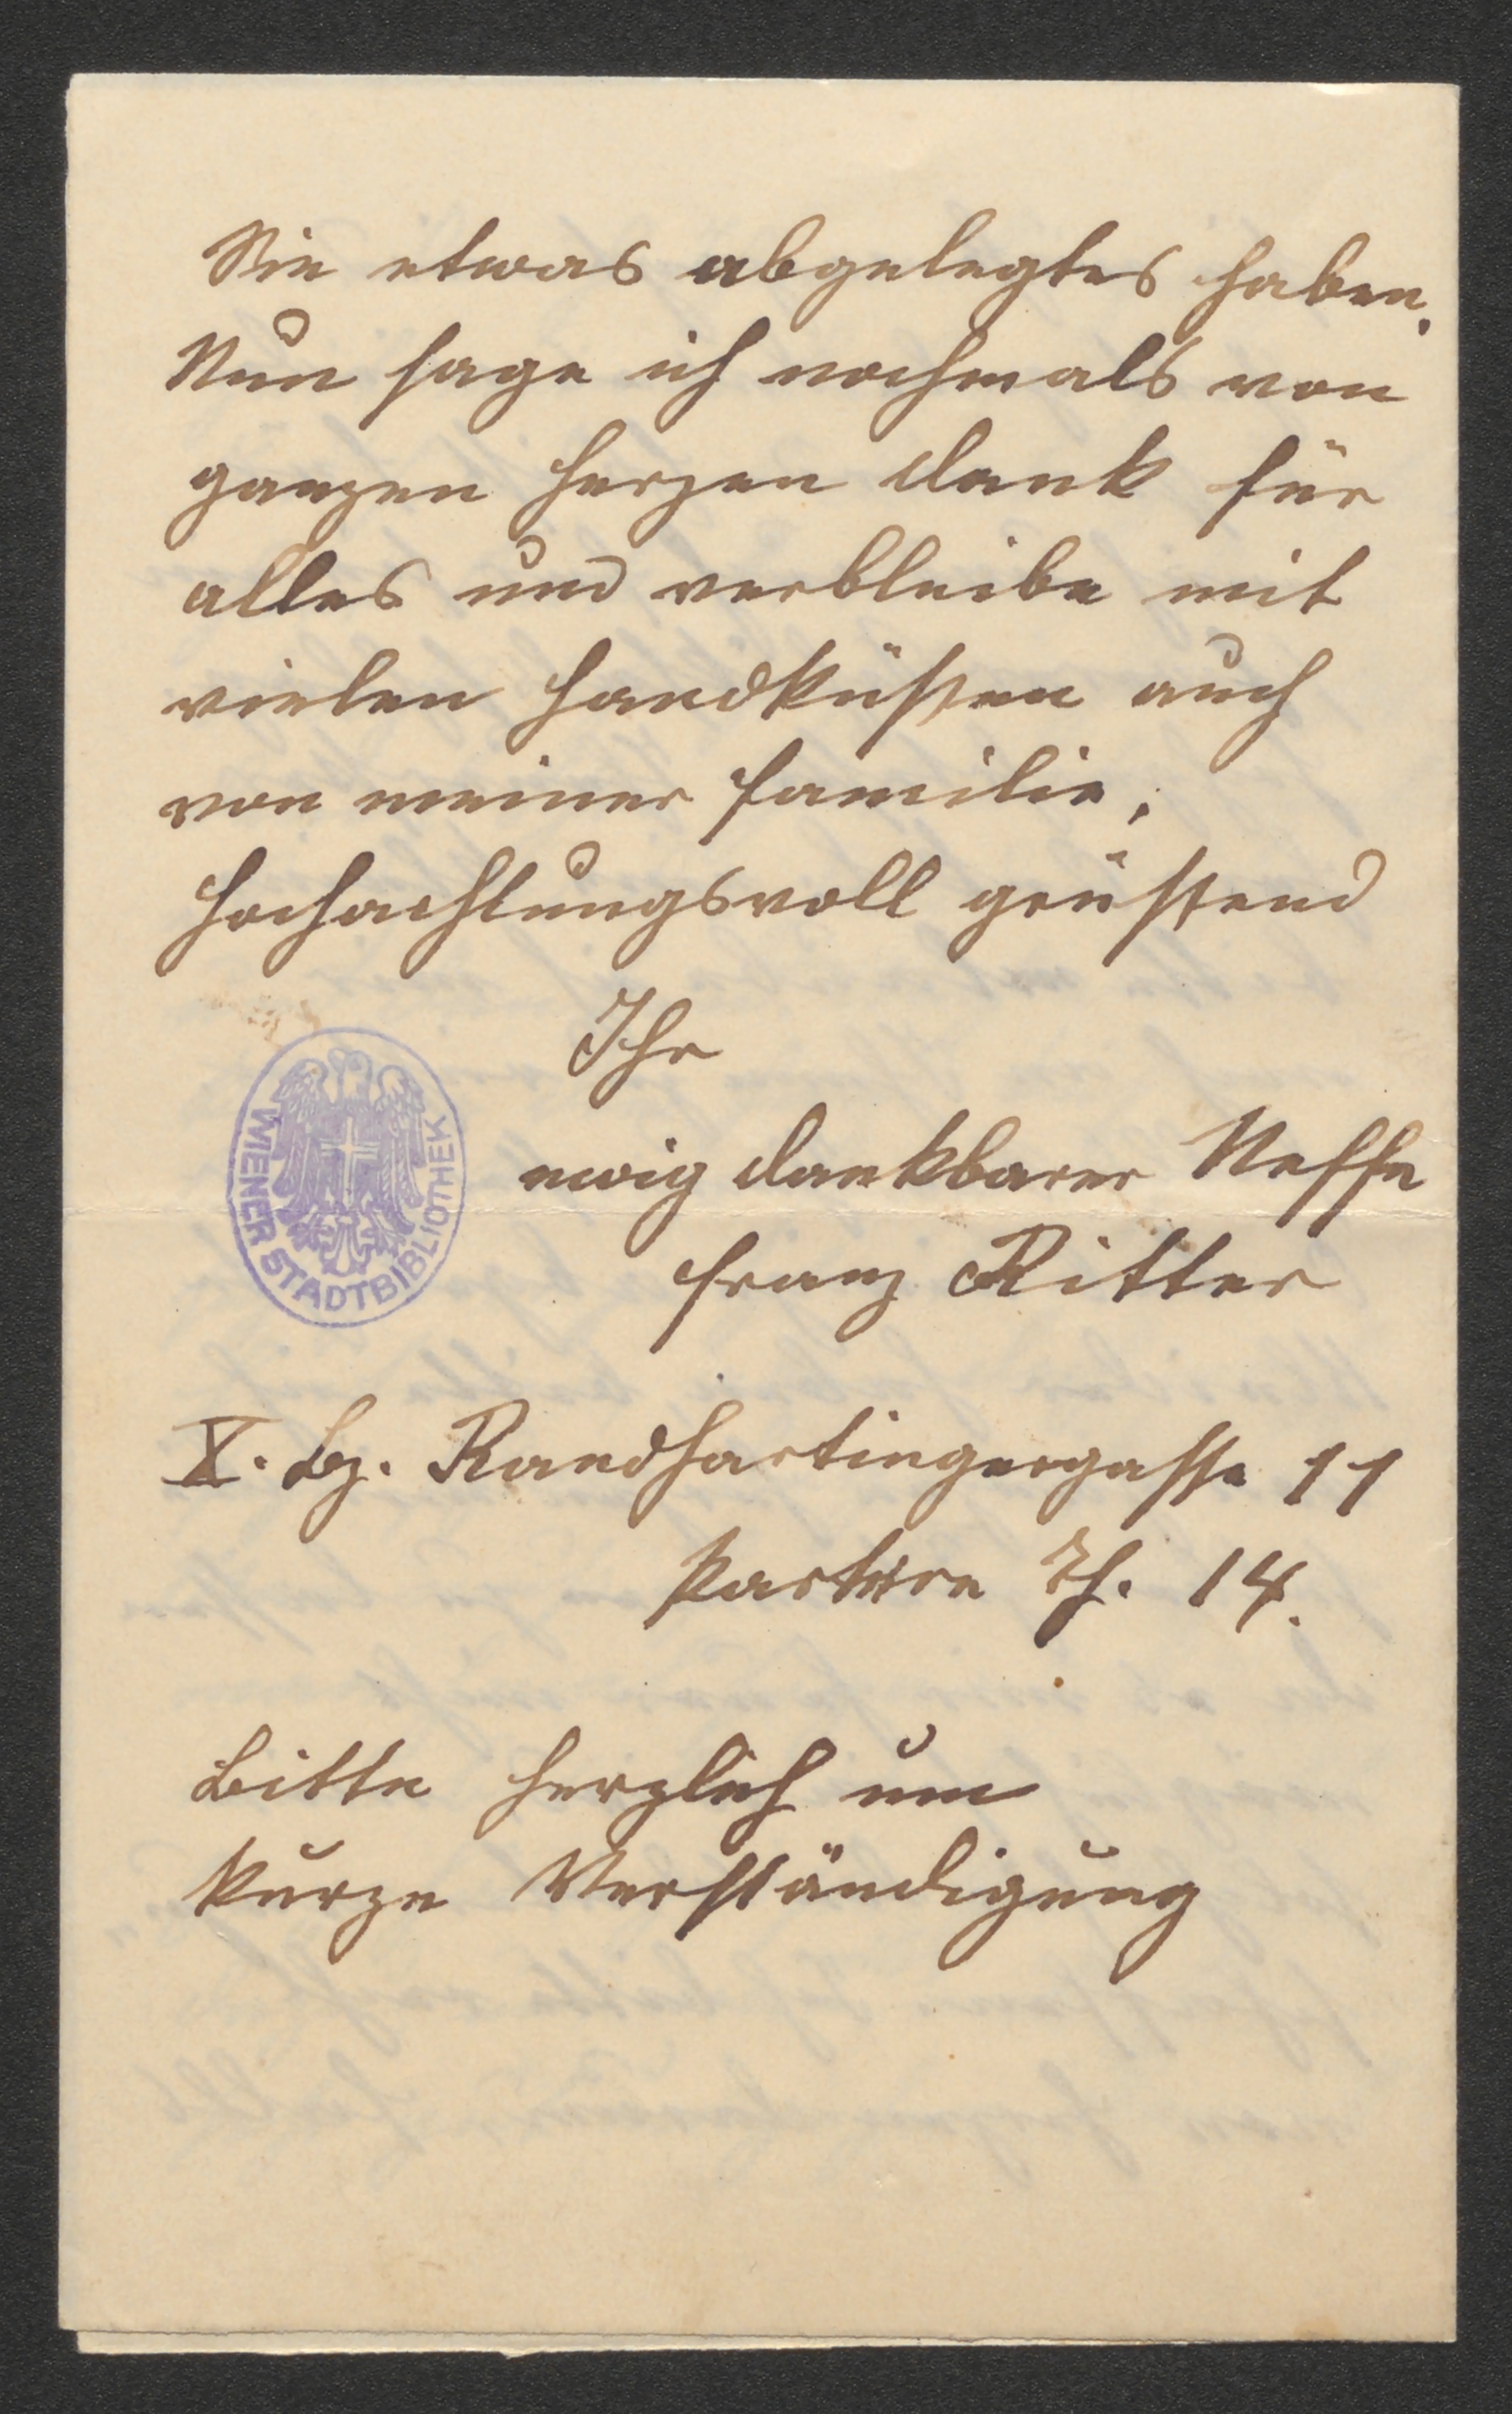 Sie etwas abgelegtes haben.
Nun sage ich nochmals von
ganzen Herzen Dank für
alles und verbleibe mit
vielen Handküßen auch
von meiner Familie,
Hochachtungsvoll grüßend
Ihr
ewig dankbarer Neffe
Franz Ritter
WIENER STADTBIBLIOTHEK
X. Bz. Randhartingergasse 11
Partere Th. 14.
Bitte herzlich um
kurze Verständigung